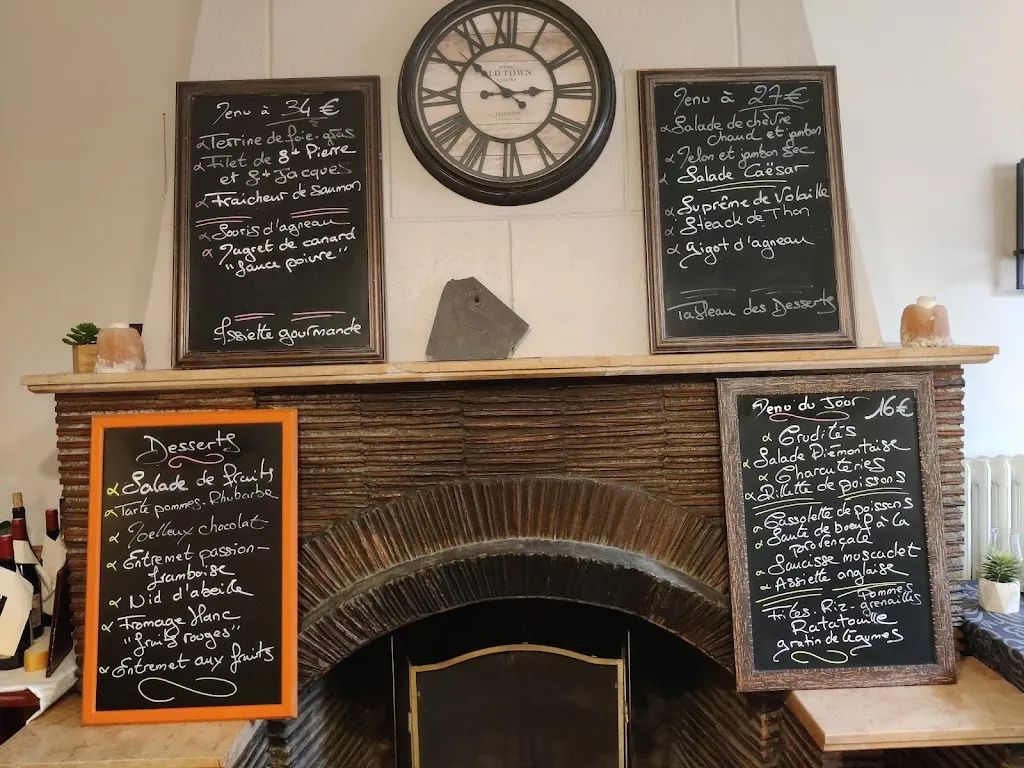 Menu à 34 €
Terrine de foie-gras
Filet de St Pierre
et St Jacques
Fraicheur de saumon
Souris d'agneau
Magret de canard
"sauce poivre"
Assiette gourmande
OLD TOWN
LONDON
Menu à 27€
Salade de chèvre
chaud et jambon
Melon et jambon sec
Salade Caësar
Suprême de Volaille
Steack de Thon
Gigot d'agneau
Tableau des Desserts
Desserts
Salade de fruits
Tarte pommes-Rhubarbe
Moelleux chocolat
Entremet passion-
framboise
Nid d'abeille
Fromage blanc
"fruits rouges"
Entremet aux fruits
Menu du Jour 16€
Crudités
Salade Piemontaise
Charcuteries
Rillette de poissons
Cassolette de poissons
Sauté de boeuf à la
provençale
Saucisse muscadet
Assiette anglaise
Frites. Riz. Pommes grenailles
Ratatouille
gratin de légumes